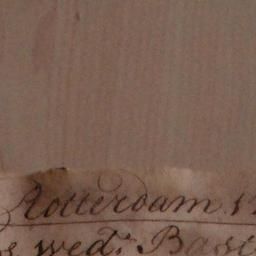 Rotterdam
wedr. Bast